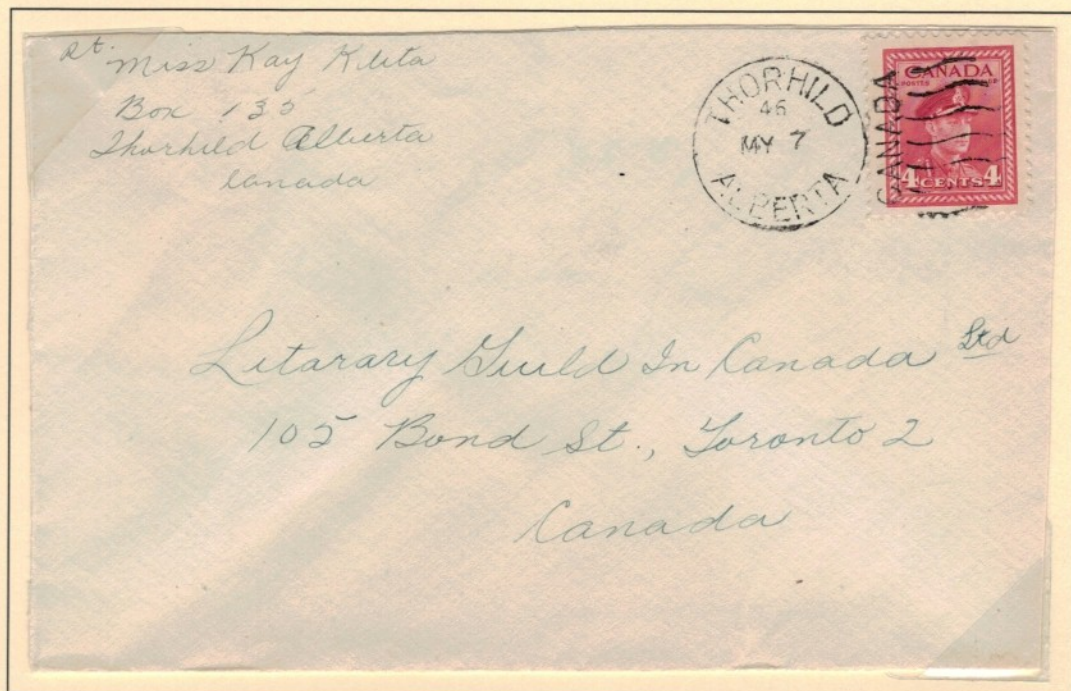 Rt. Miss Kay Kleta
Box 135
Thorhild Alberta
Canada
THORHILD
46
MY 7
ALBERTA
CANADA
CANADA
POSTES POSTAGE
4 CENTS 4
Litarary Guild In Canada Ltd
105 Bond St., Toronto 2
Canada